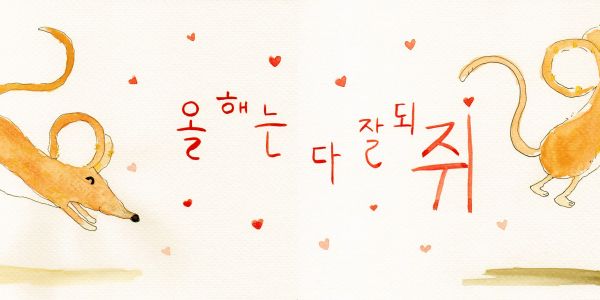 올해는 다 잘되쥐